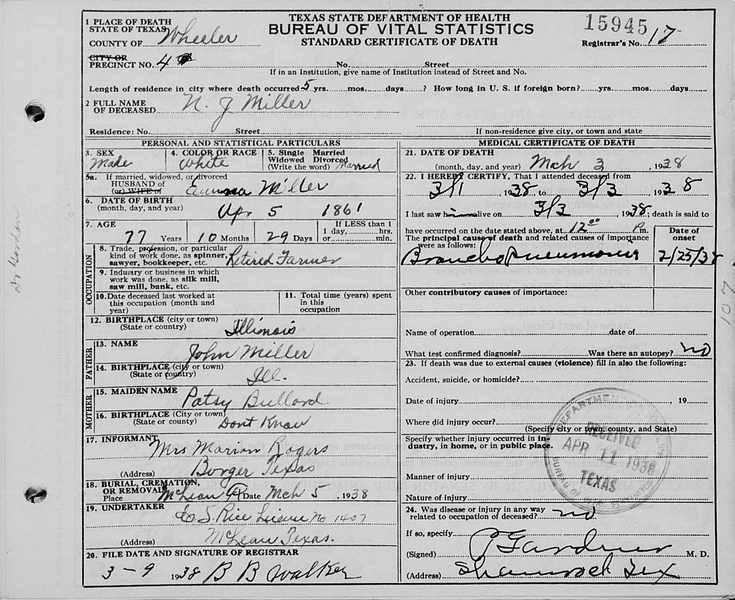 TEXAS STATE DEPARTMENT OF HEALTH
BUREAU OF VITAL STATISTICS
STANDARD CERTIFICATE OF DEATH
15945
Registrar's No. 17
1 PLACE OF DEATH
STATE OF TEXAS
COUNTY OF Wheeler
CITY OR
PRECINCT NO. 4
No. Street
If in an Institution, give name of Institution instead of Street and No.
Length of residence in city where death occurred 5 yrs. mos. days ? How long in U. S. if foreign born? yrs. mos. days
2 FULL NAME
OF DECEASED N. J Miller
Residence: No. Street If non-residence give city, or town and state
PERSONAL AND STATISTICAL PARTICULARS
3. SEX Male
4. COLOR OR RACE White
5. Single Married
Widowed Divorced
(Write the word) Married
5a. If married, widowed, or divorced
HUSBAND OF
(or) WIFE OF Emma Miller
6. DATE OF BIRTH
(month, day, and year) Apr 5 1861
7. AGE 77 Years 10 Months 29 Days
If LESS than 1
1 day, hrs.
or min.
OCCUPATION
8. Trade, profession, or particular
kind of work done, as spinner,
sawyer, bookkeeper, etc. Retired Farmer
9. Industry or business in which
work was done, as silk mill,
saw mill, bank, etc.
10. Date deceased last worked at
this occupation (month and
year)
11. Total time (years) spent
in this
occupation
12. BIRTHPLACE (city or town)
(State or country) Illinois
FATHER
13. NAME John Miller
14. BIRTHPLACE (city or town)
(State or country) Ill.
MOTHER
15. MAIDEN NAME Patsy Bullard
16. BIRTHPLACE (city or town)
(State or country) Dont Know
17. INFORMANT Mrs Marion Rogers
(Address) Borger Texas
18. BURIAL, CREMATION,
OR REMOVAL
Place McLean Date Mch 5, 1938
19. UNDERTAKER E S. Rice License No 1407
(Address) McLean Texas.
20. FILE DATE AND SIGNATURE OF REGISTRAR
3-9 1938 B B Walker
MEDICAL CERTIFICATE OF DEATH
21. DATE OF DEATH
(month, day, and year) Mch 3, 1938
22. I HEREBY CERTIFY, That I attended deceased from
3/1 1938, to 3/3 1938
I last saw him alive on 3/3 1938; death is said to
have occurred on the date stated above, at 12 00 P m.
The principal cause of death and related causes of importance
were as follows:
Date of
onset
Broncho Pneumonia 2/25/38
Other contributory causes of importance:
Name of operation date of
What test confirmed diagnosis? Was there an autopsy? no
23. If death was due to external causes (violence) fill in also the following:
Accident, suicide, or homicide?
Date of injury , 19
Where did injury occur?
(Specify city or town, county, and State)
Specify whether injury occurred in industry, in home, or in public place.
Manner of injury
Nature of injury
RECEIVED
APR 11 1938
TEXAS
24. Was disease or injury in any way
related to occupation of deceased? no
If so, specify
(Signed) P Gardner M. D.
(Address) Shamrock Tex
107